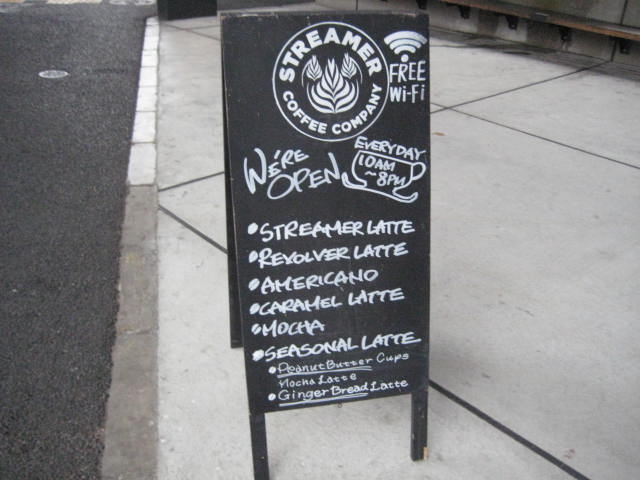 STREAMER
COFFEE COMPANY
FREE
Wi-Fi
WE'RE
OPEN
EVERYDAY
10AM
~8PM
• STREAMER LATTE
• REVOLVER LATTE
• AMERICANO
• CARAMEL LATTE
• MOCHA
• SEASONAL LATTE
• Peanut Butter Cups
Mocha Latte
• Ginger Bread Latte